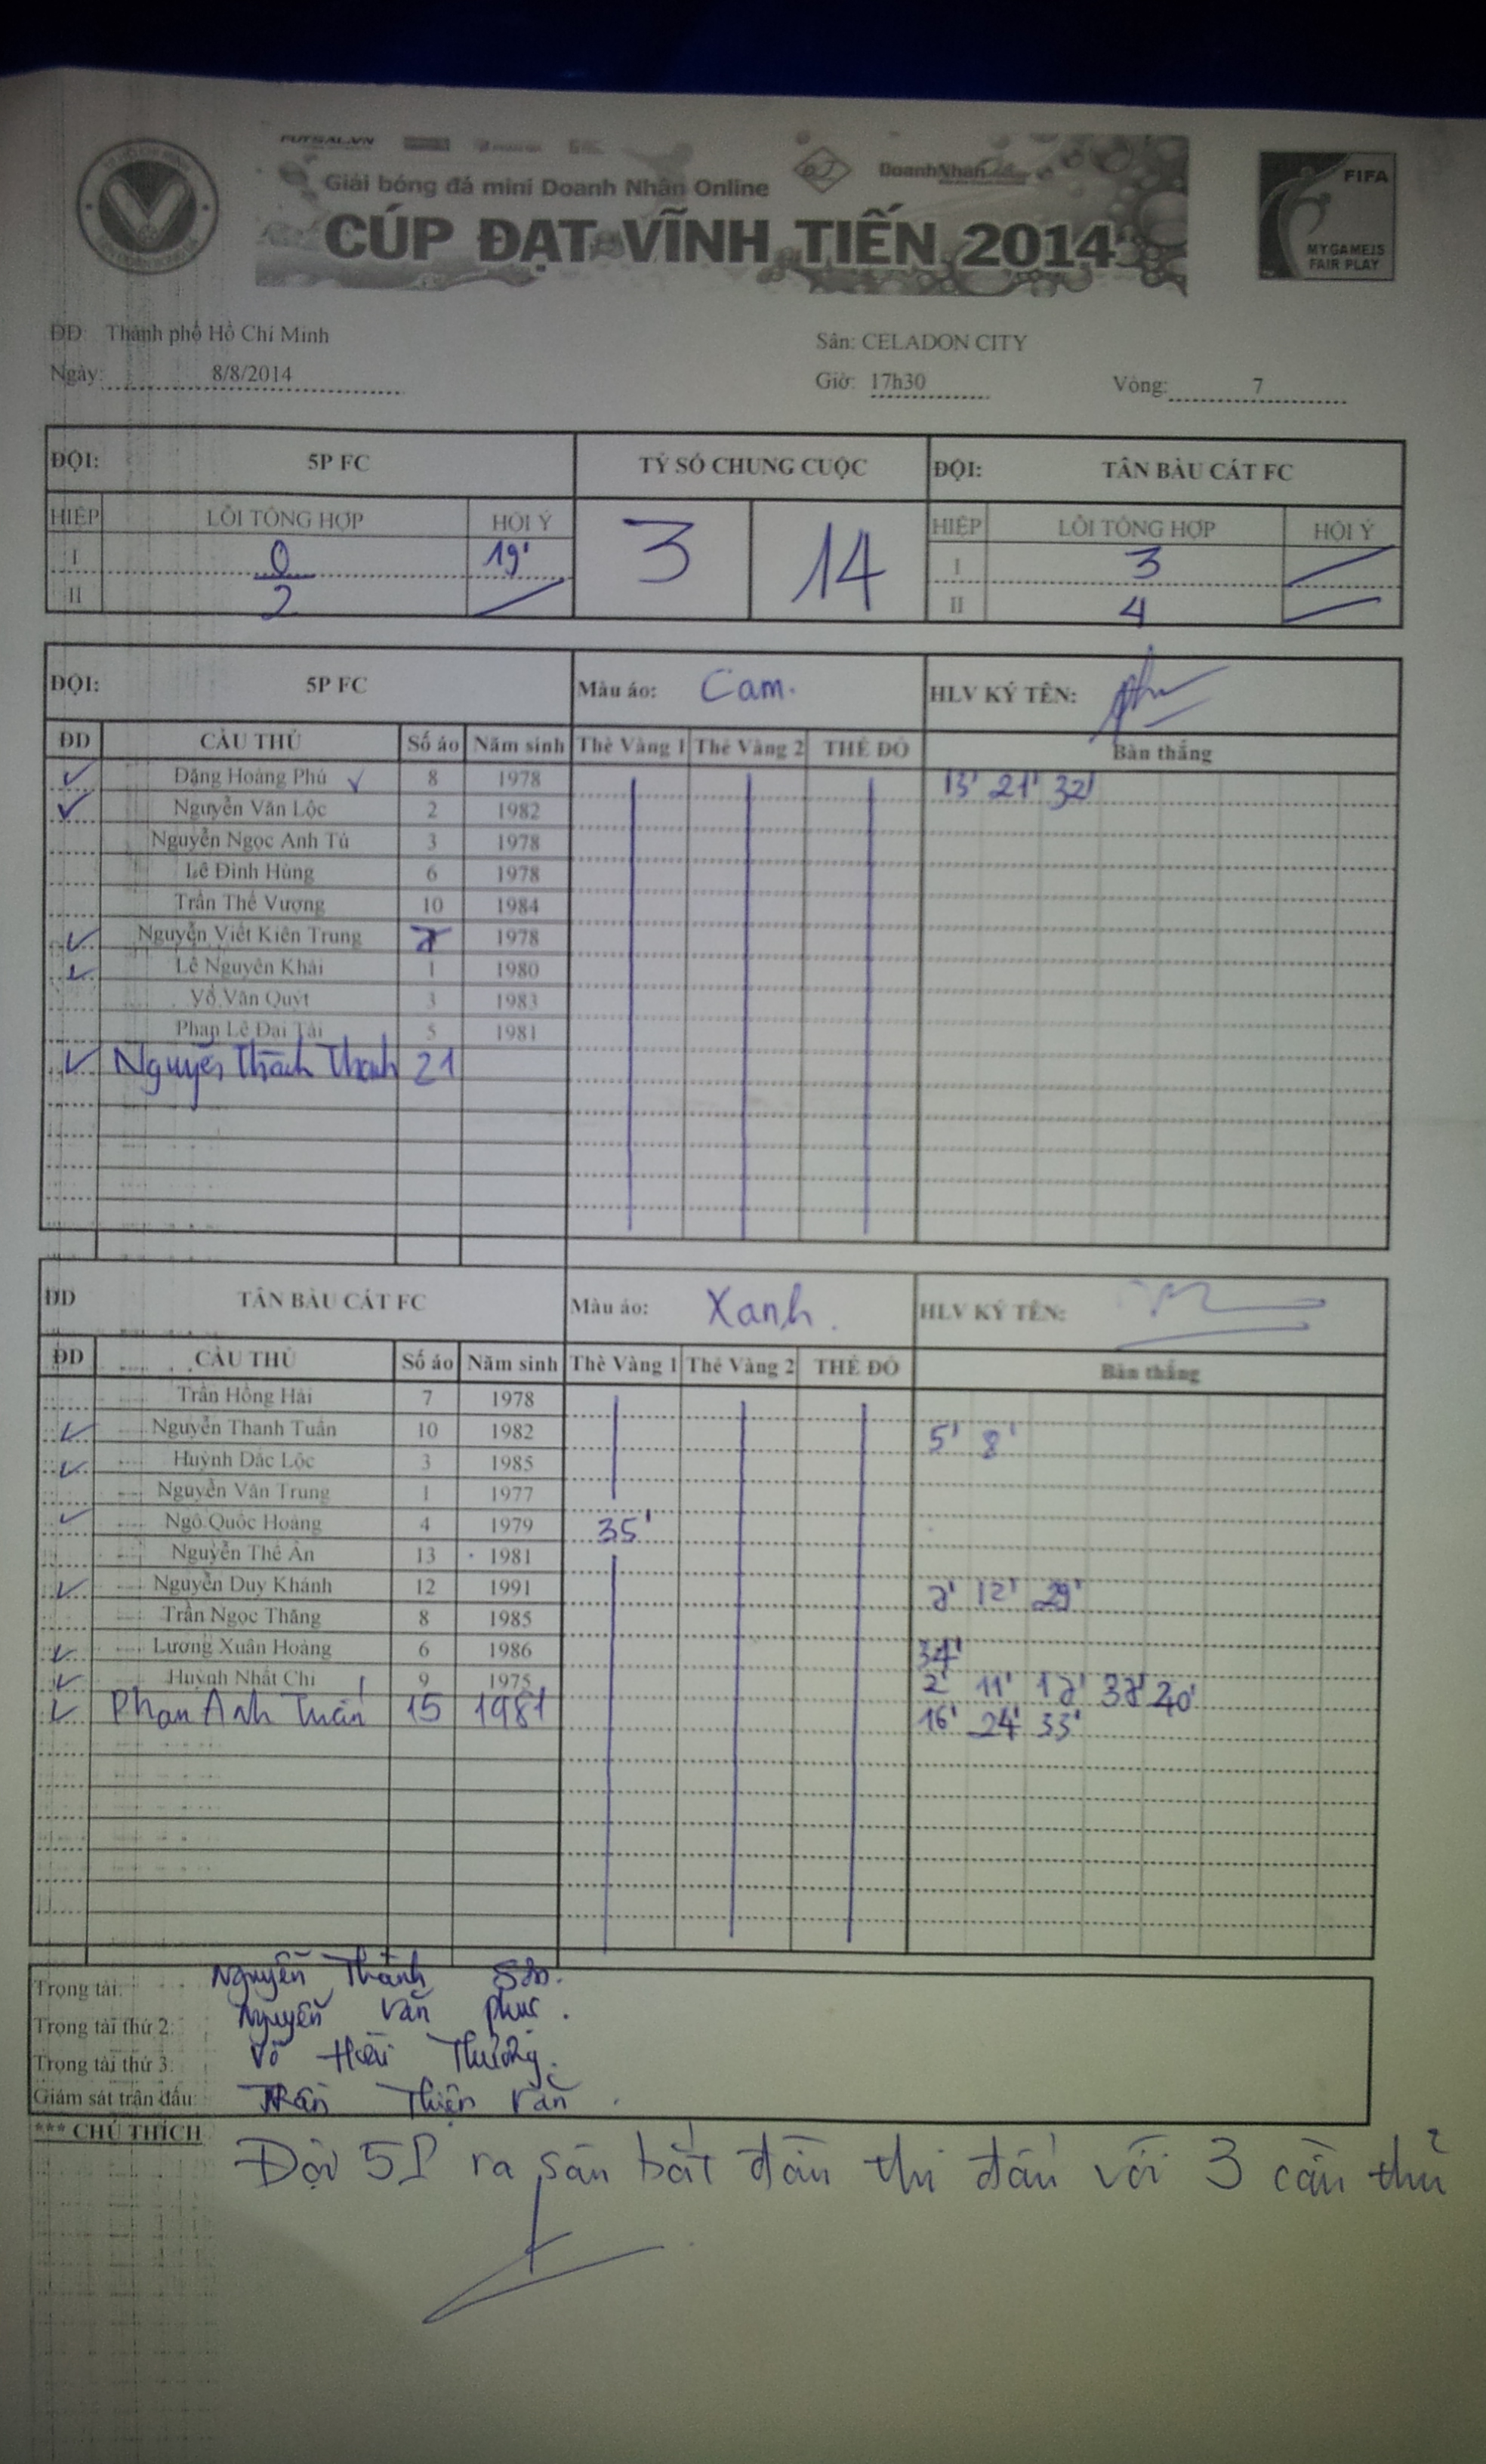 FUTSAL.VN
Giải bóng đá mini Doanh Nhân Online DoanhNhân
CÚP ĐẠT VĨNH TIẾN 2014
FIFA
MY GAME IS
FAIR PLAY
ĐĐ: Thành phố Hồ Chí Minh Sân: CELADON CITY
Ngày: 8/8/2014 Giờ: 17h30 Vòng: 7
ĐỘI: 5P FC TỶ SỐ CHUNG CUỘC ĐỘI: TÂN BÀU CÁT FC
HIỆP LỖI TỔNG HỢP HỘI Ý 3 14 HIỆP LỖI TỔNG HỢP HỘI Ý
I 0 19' I 3
II 2 II 4
ĐỘI: 5P FC Màu áo: Cam. HLV KÝ TÊN:
ĐD CẦU THỦ Số áo Năm sinh Thẻ Vàng 1 Thẻ Vàng 2 THẺ ĐỎ Bàn thắng
Đặng Hoàng Phú 8 1978 13' 21' 32'
Nguyễn Văn Lộc 2 1982
Nguyễn Ngọc Anh Tú 3 1978
Lê Đình Hùng 6 1978
Trần Thế Vượng 10 1984
Nguyễn Viết Kiên Trung 1978
Lê Nguyên Khải 1 1980
Võ Văn Quýt 3 1983
Phan Lê Đại Tài 5 1981
Nguyễn Thành 21
ĐD TÂN BÀU CÁT FC Màu áo: Xanh. HLV KÝ TÊN:
ĐD CẦU THỦ Số áo Năm sinh Thẻ Vàng 1 Thẻ Vàng 2 THẺ ĐỎ Bàn thắng
Trần Hồng Hải 7 1978
Nguyễn Thanh Tuấn 10 1982 5' 8'
Huỳnh Đắc Lộc 3 1985
Nguyễn Văn Trung 1 1977
Ngô Quốc Hoàng 4 1979 35'
Nguyễn Thế Ân 13 1981
Nguyễn Duy Khánh 12 1991 12' 29'
Trần Ngọc Thăng 8 1985
Lương Xuân Hoàng 6 1986 34'
Huỳnh Nhất Chi 9 1975 2' 11'
Phan Anh Tuấn 15 1981 16' 24' 33'
Trọng tài: Nguyễn Thành
Trọng tài thứ 2: Nguyễn Văn Phúc.
Trọng tài thứ 3: Võ Hoài Thương.
Giám sát trận đấu: Trần Thiện Văn.
*** CHÚ THÍCH
Đội 5P ra sân bắt đầu thi đấu với 3 cầu thủ